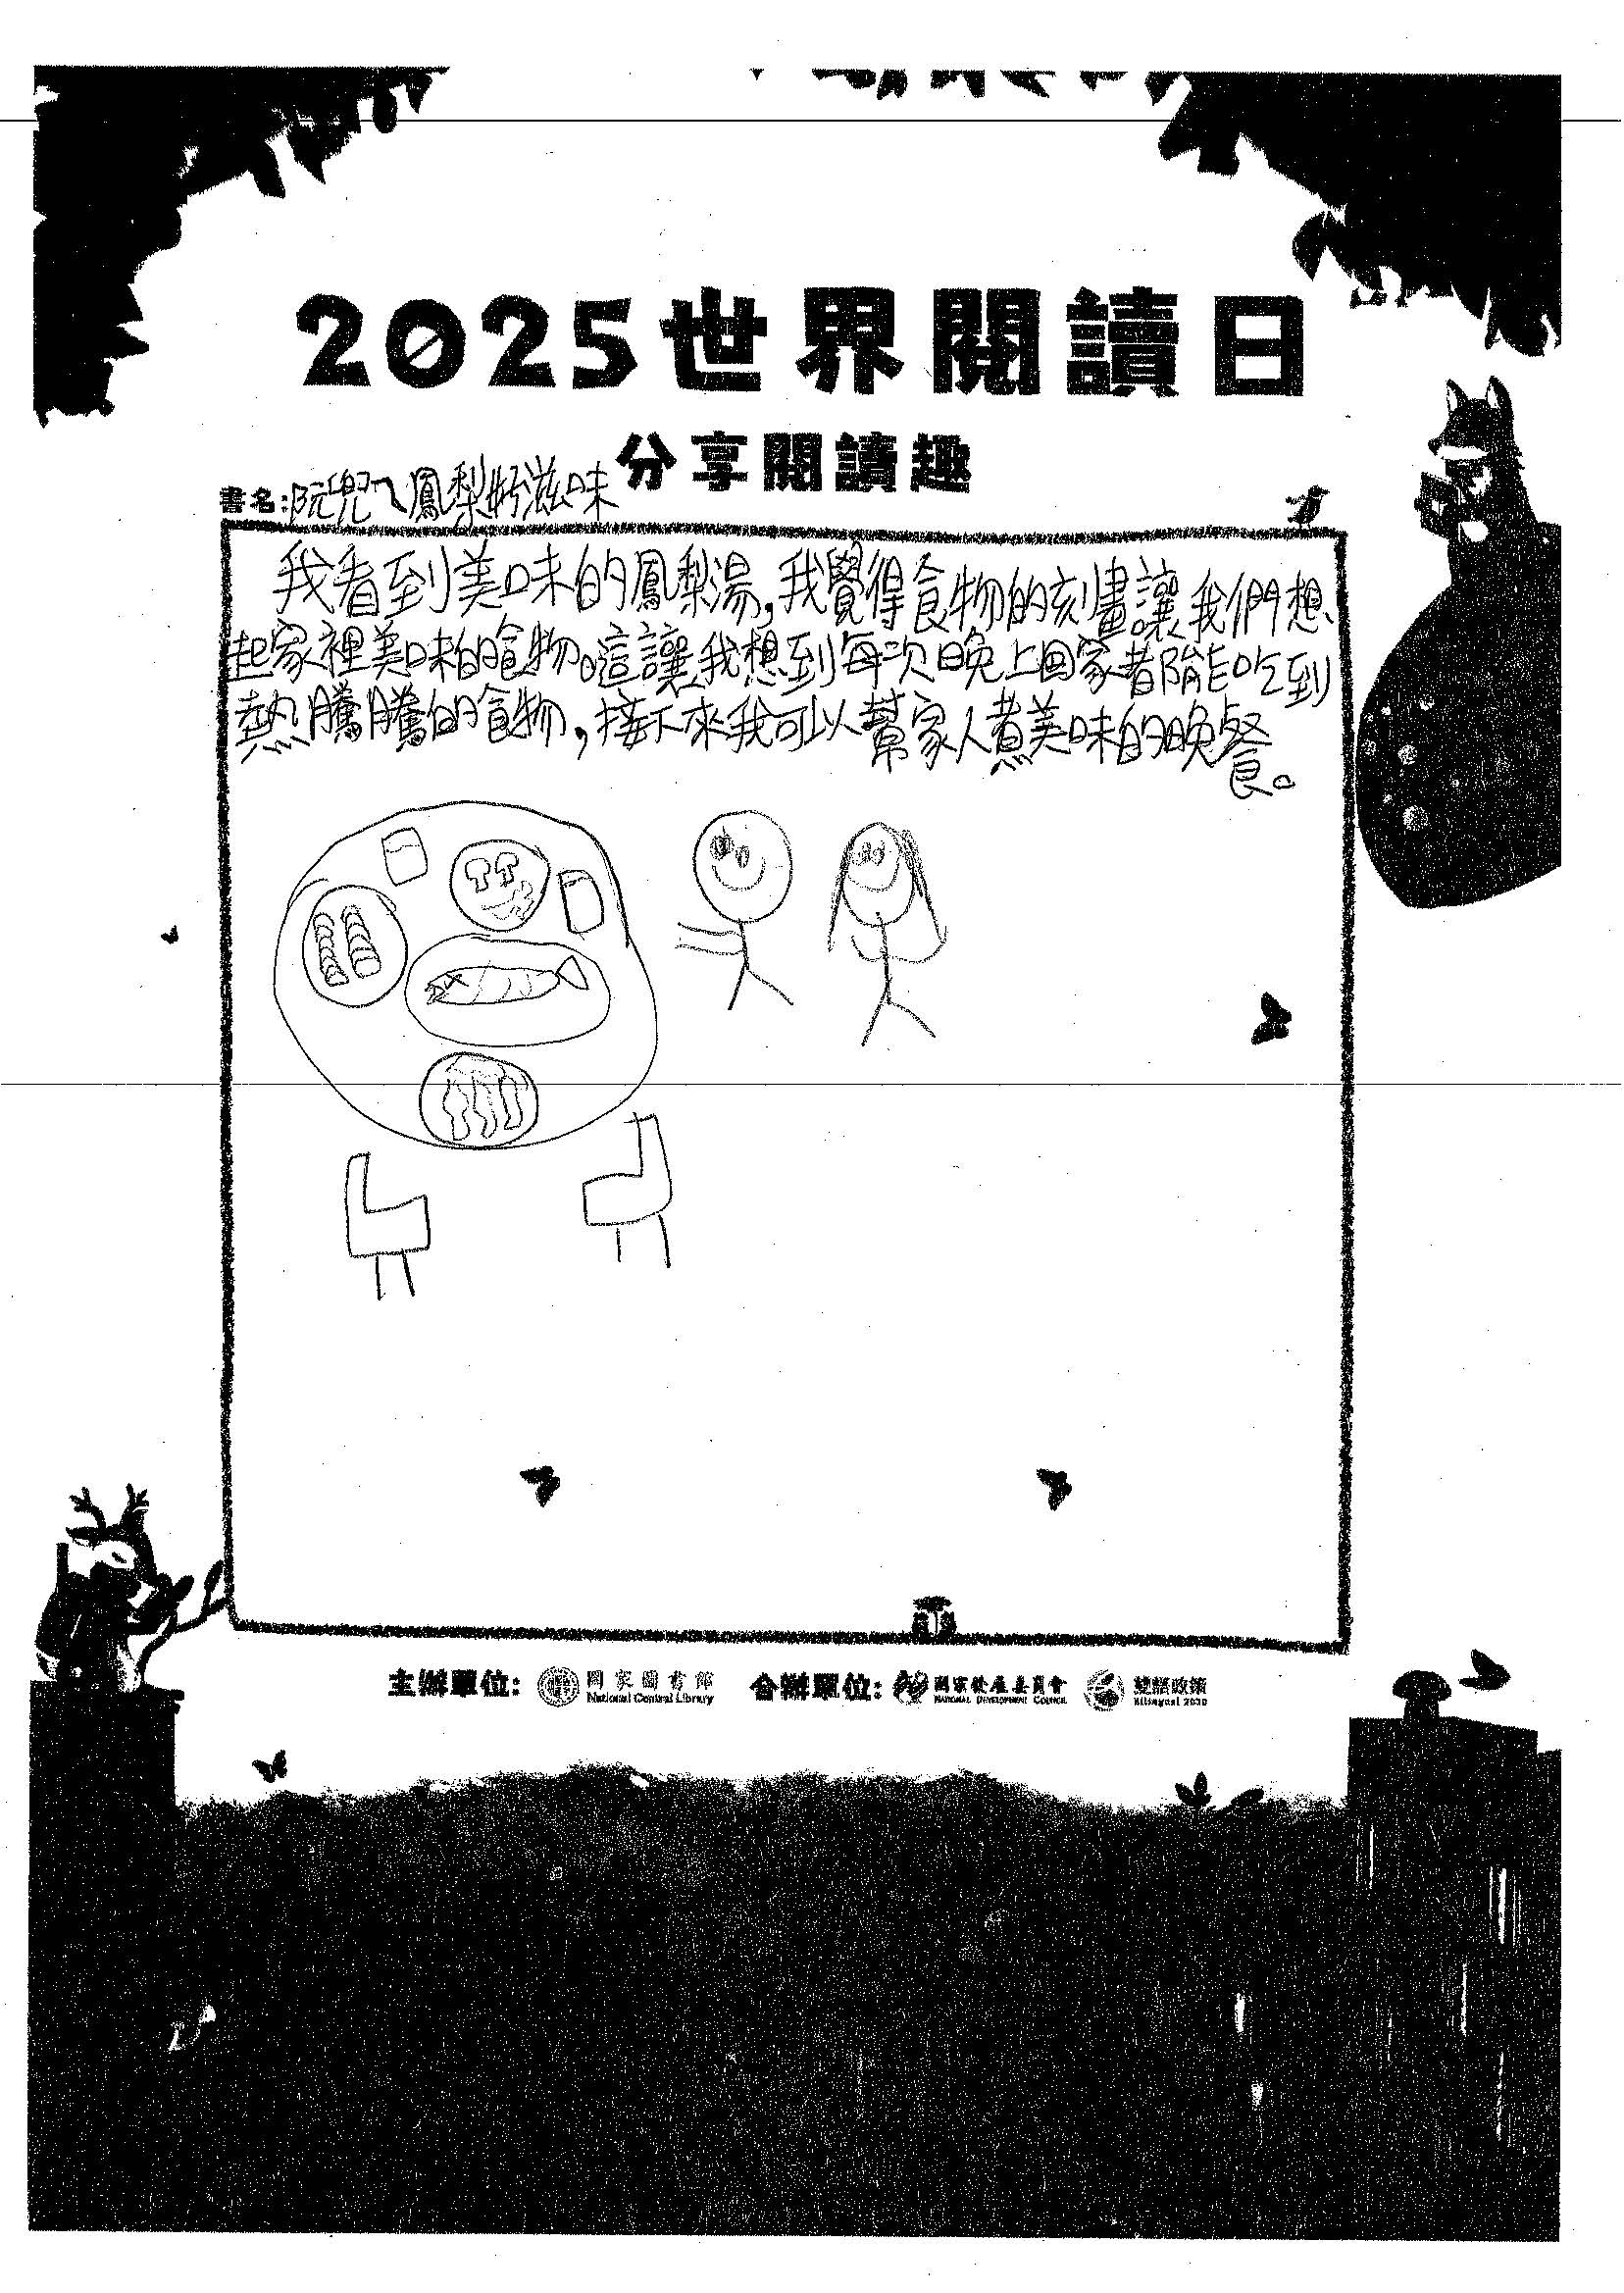 2025世界閱讀日
分享閱讀趣
書名:阮兜ㄟ鳳梨好滋味
我看到美味的鳳梨湯,我覺得食物的刻畫讓我們想
起家裡美味的食物。這讓我想到每次晚上回家都能吃到
熱騰騰的食物,接下來我可以幫家人煮美味的晚餐。
主辦單位: 國家圖書館 National Central Library 合辦單位: 國家發展委員會 NATIONAL DEVELOPMENT COUNCIL 雙語政策 Bilingual 2030